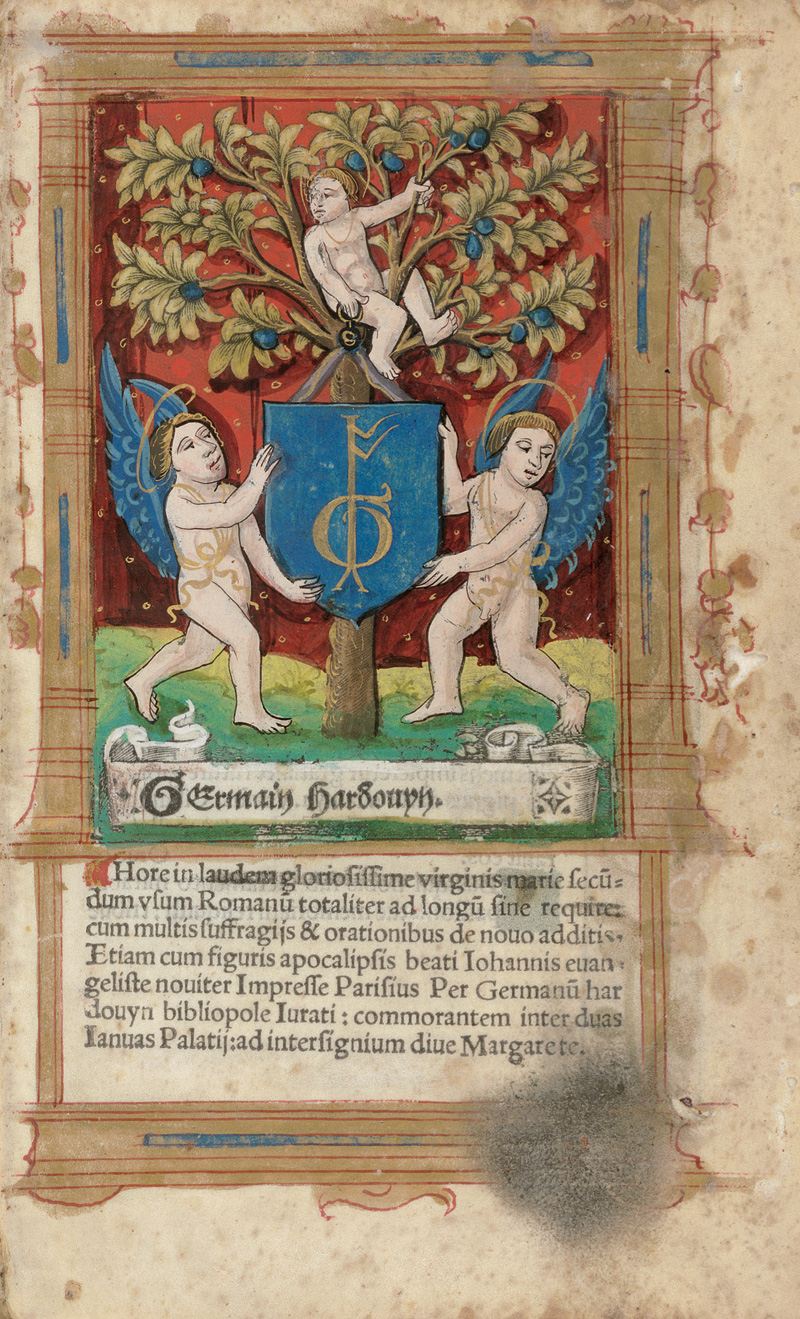 Germain Hardouyn.
Hore in laudem gloriosissime virginis marie secū=
dum vsum Romanū totaliter ad longū sine require:
cum multis suffragijs & orationibus de nouo additis,
Etiam cum figuris apocalipsis beati Iohannis euan-
geliste nouiter Impresse Parisius Per Germanū har
douyn bibliopole Iurati : commorantem inter duas
Ianuas Palatij:ad intersignium diue Margarete.